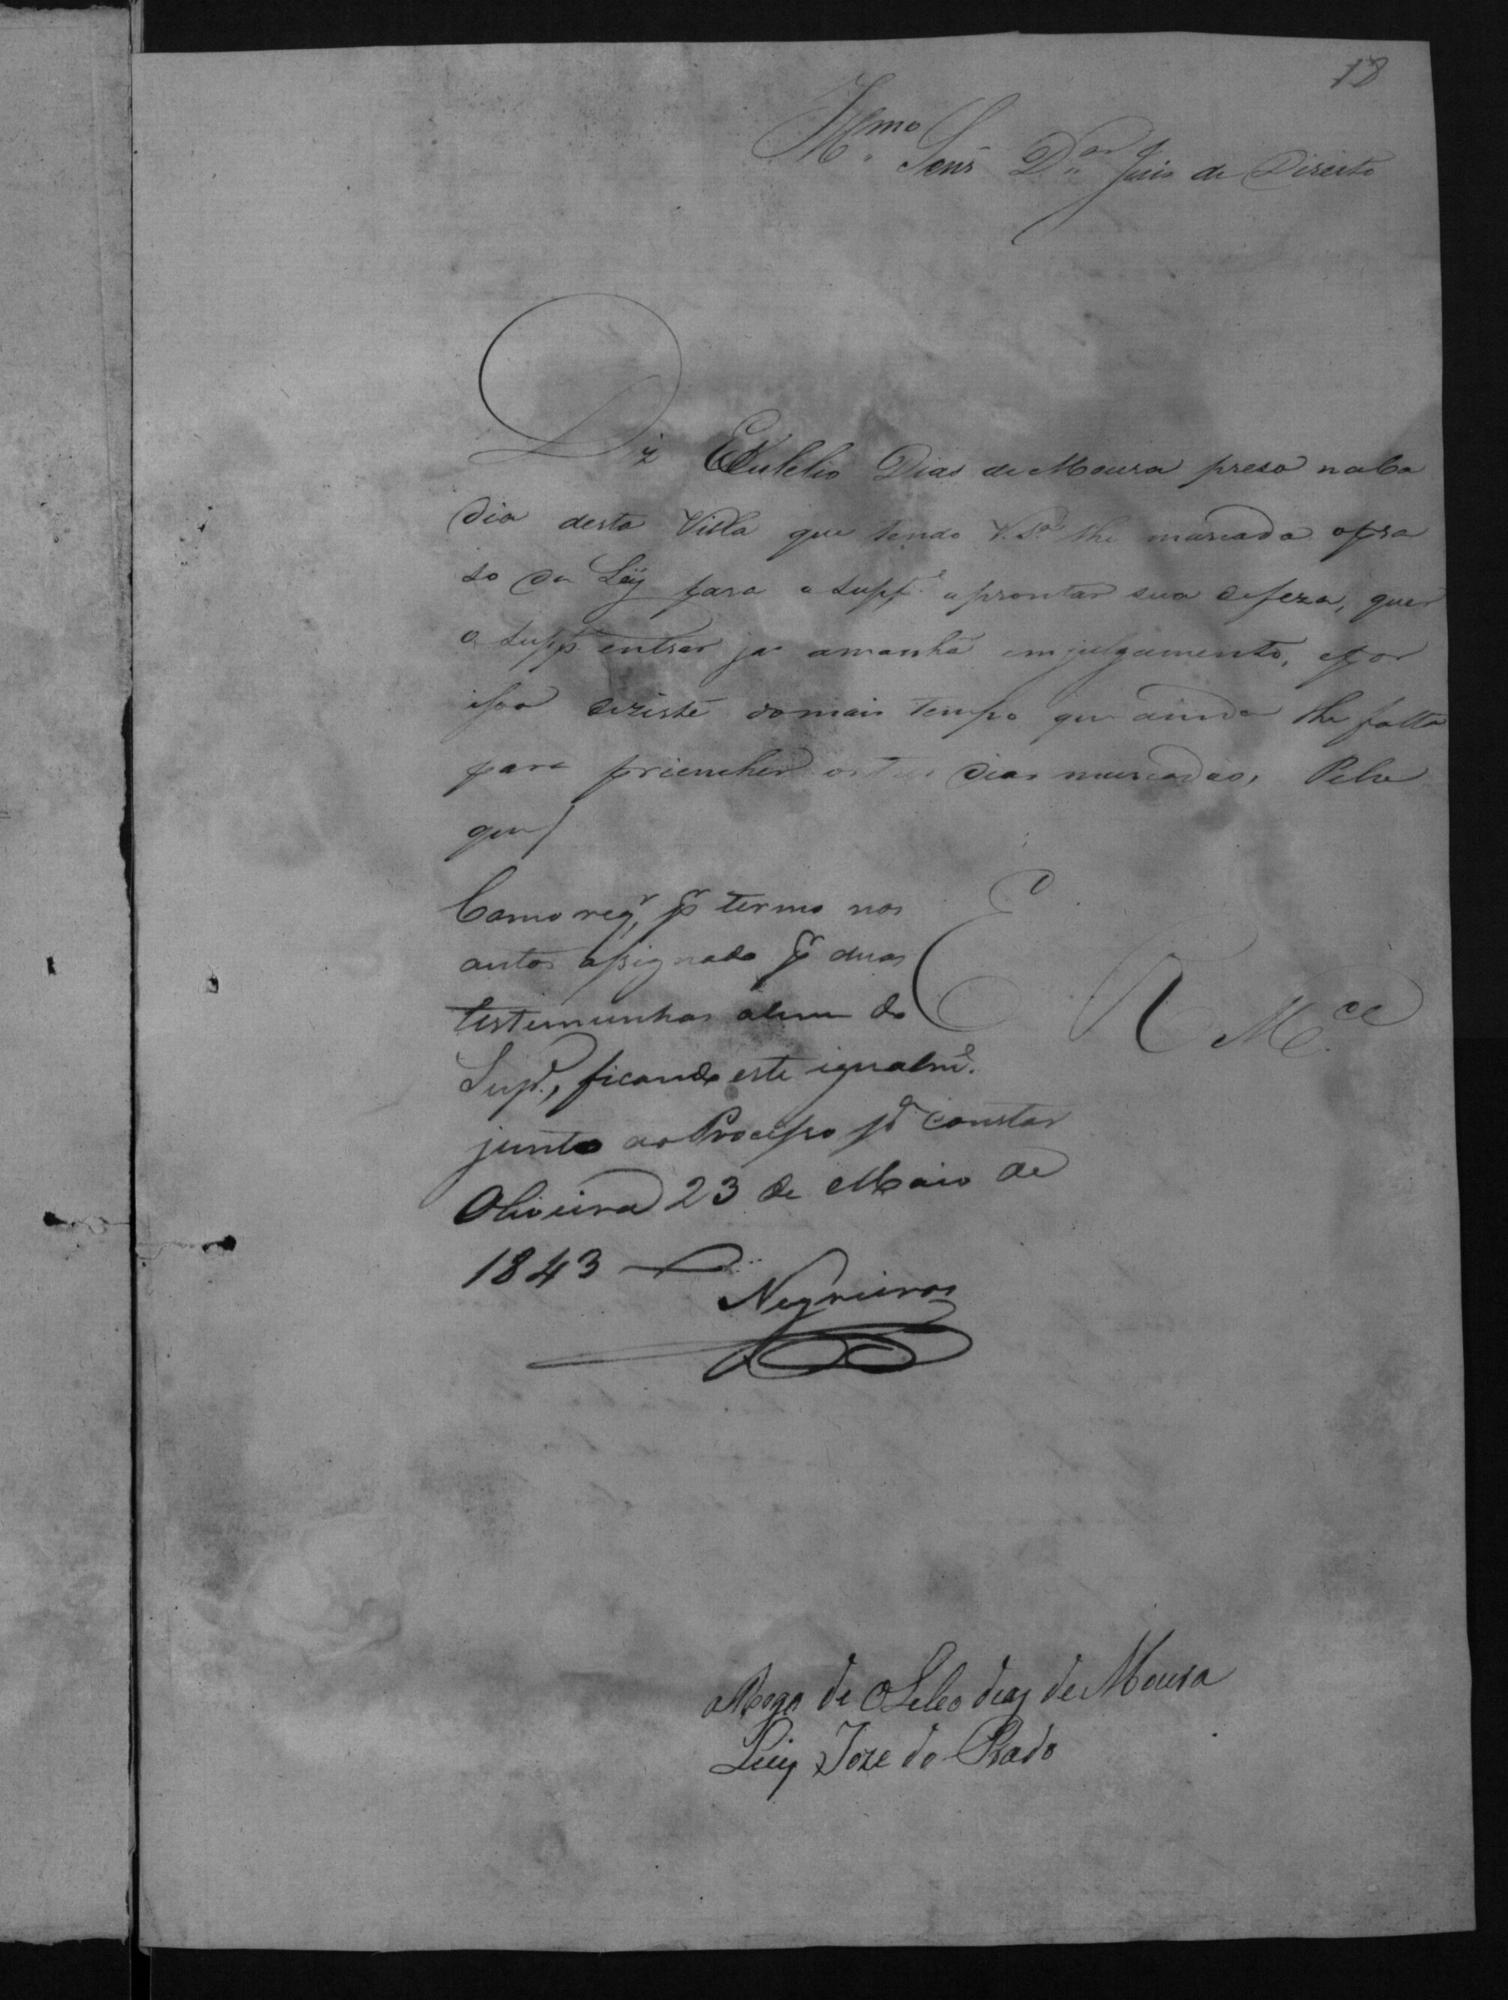 18
Illmo. Senr. Dor. Juis de Direito
Diz Dias de Moura preso na Ca
dia desta Villa que tendo V. Sa. lhe marcado opra
so da Ley para o suppe. aprontar sua defeza, quer
o suppe. entrar ja amanhã em julgamento, epor
isso deziste domais tempo que ainda lhe falta
para priencher os tres dias marcados, Pelo
que/
Como reqr., pr. termo nos
autos assignado pr. duas
testemunhas alem do
Supe., ficando este igualme.
junto ao Processo pa. constar
Oliveira 23 de Maio de
1843
Negreiros
E
R Mce.
A Rogo de dias de Moura
Luiz Joze do Prado